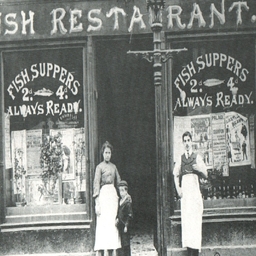 SH RESTAURANT.
FISH SUPPERS
2D. 4D.
ALWAYS READY.
FISH SUPPERS
2D. 4D.
ALWAYS READY.
PALACE